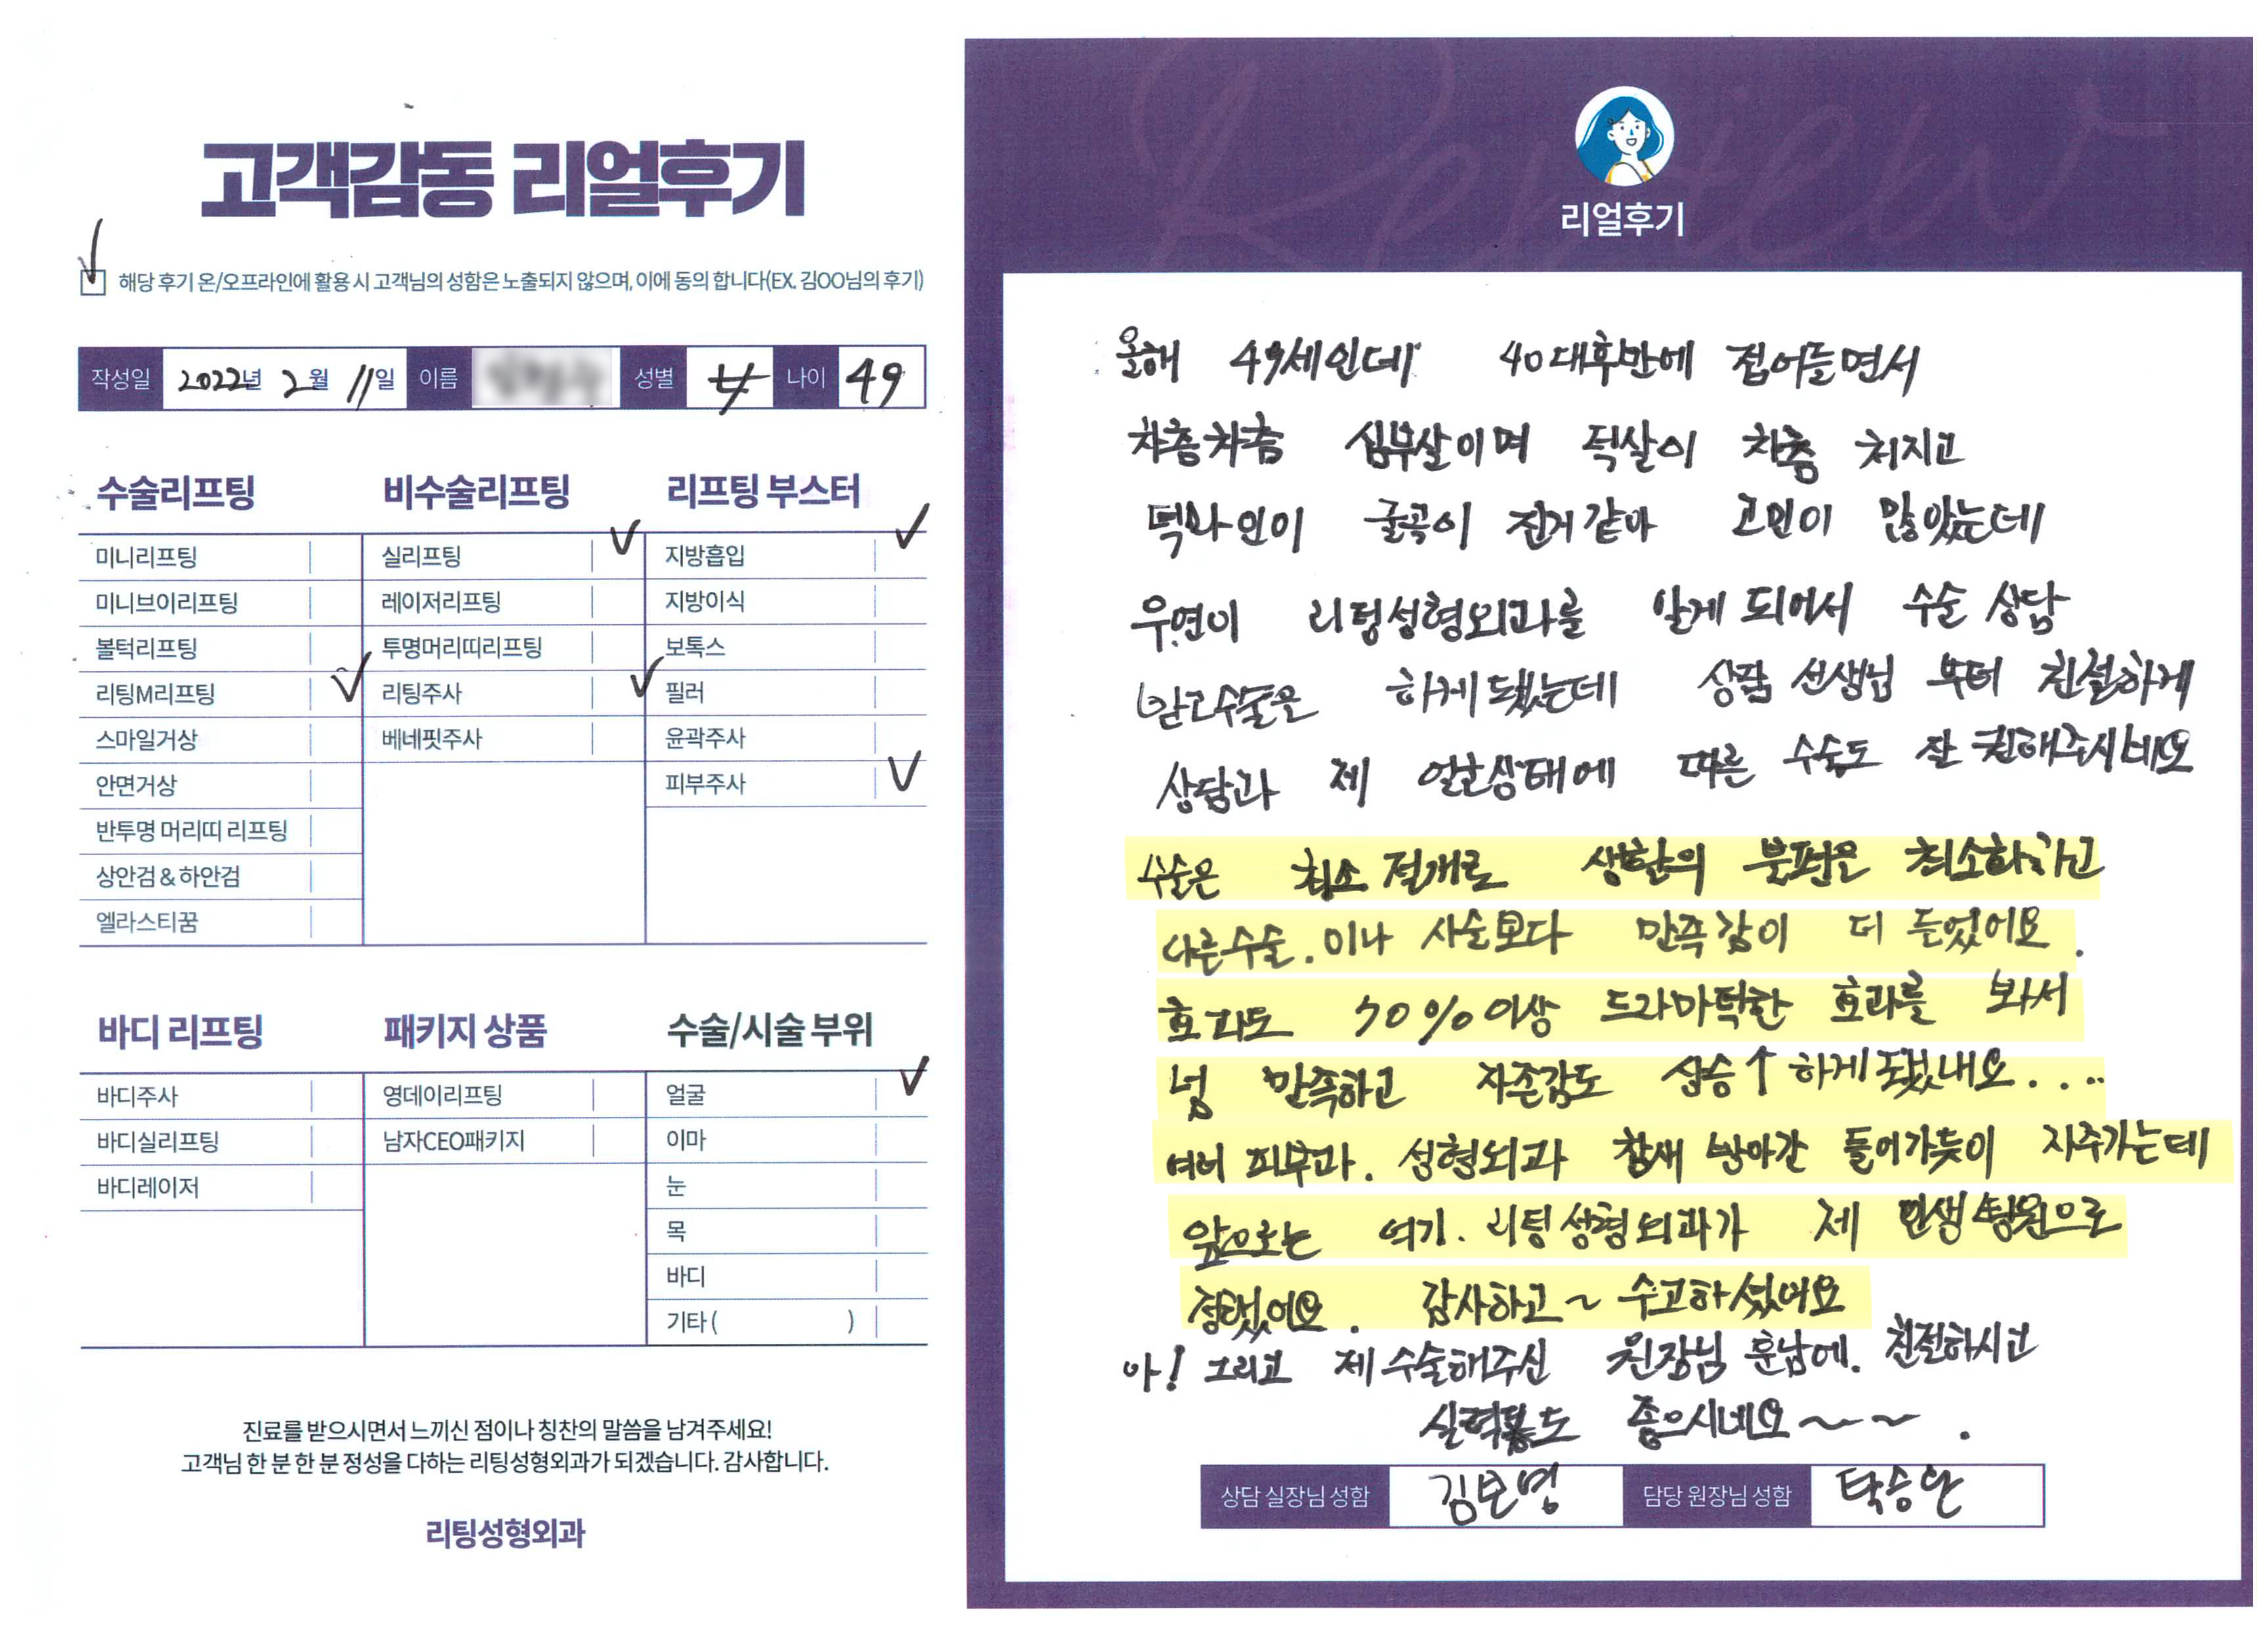 고객감동 리얼후기
해당 후기 온/오프라인에 활용 시 고객님의 성함은 노출되지 않으며, 이에 동의 합니다(EX. 김OO님의 후기)
작성일 2022년 2월 11일 이름 성별 나이 49
수술리프팅
미니리프팅
미니브이리프팅
볼턱리프팅
리팅M리프팅
스마일거상
안면거상
반투명 머리띠 리프팅
상안검 & 하안검
엘라스티꿈
비수술리프팅
실리프팅
레이저리프팅
투명머리띠리프팅
리팅주사
베네핏주사
리프팅 부스터
지방흡입
지방이식
보톡스
필러
윤곽주사
피부주사
바디 리프팅
바디주사
바디실리프팅
바디레이저
패키지 상품
영데이리프팅
남자CEO패키지
수술/시술 부위
얼굴
이마
눈
목
바디
기타 ( )
진료를 받으시면서 느끼신 점이나 칭찬의 말씀을 남겨주세요!
고객님 한 분 한 분 정성을 다하는 리팅성형외과가 되겠습니다. 감사합니다.
리팅성형외과
Review
리얼후기
올해 49세인데 40대후반에 접어들면서
차츰차츰 심부살이며 턱살이 차츰 처지고
턱라인이 굴곡이 진거같아 고민이 많았는데
우연이 리팅성형외과를 알게 되어서 수술 상담
받고수술을 하게됐는데 상담 선생님 부터 친절하게
상담과 제 얼굴상태에 따른 수술도 잘 권해주시네요
수술은 최소 절개로 생활의 불편은 최소화하고
다른수술.이나 시술보다 만족감이 더 들었어요.
효과도 70%이상 드라마틱한 효과를 봐서
넘 만족하고 자존감도 상승↑하게됐네요....
여러 피부과. 성형외과 참새 방아간 들어가듯이 자주가는데
앞으로는 여기. 리팅성형외과가 제 인생병원으로
정했어요. 감사하고~ 수고하셨어요
아! 그리고 제수술해주신 원장님 훈남에. 친절하시고
실력도 좋으시네요~~~.
상담 실장님 성함 김보영 담당 원장님 성함 탁승완